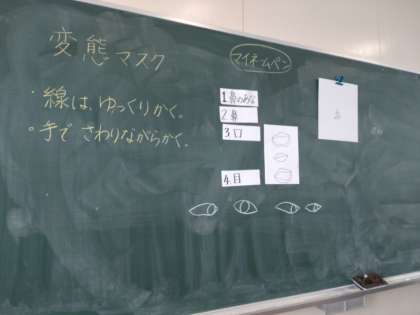 変態マスク
マイネームペン
・線は、ゆっくりかく。
・手でさわりながらかく。
1鼻のあな
2鼻
3.口
4.目